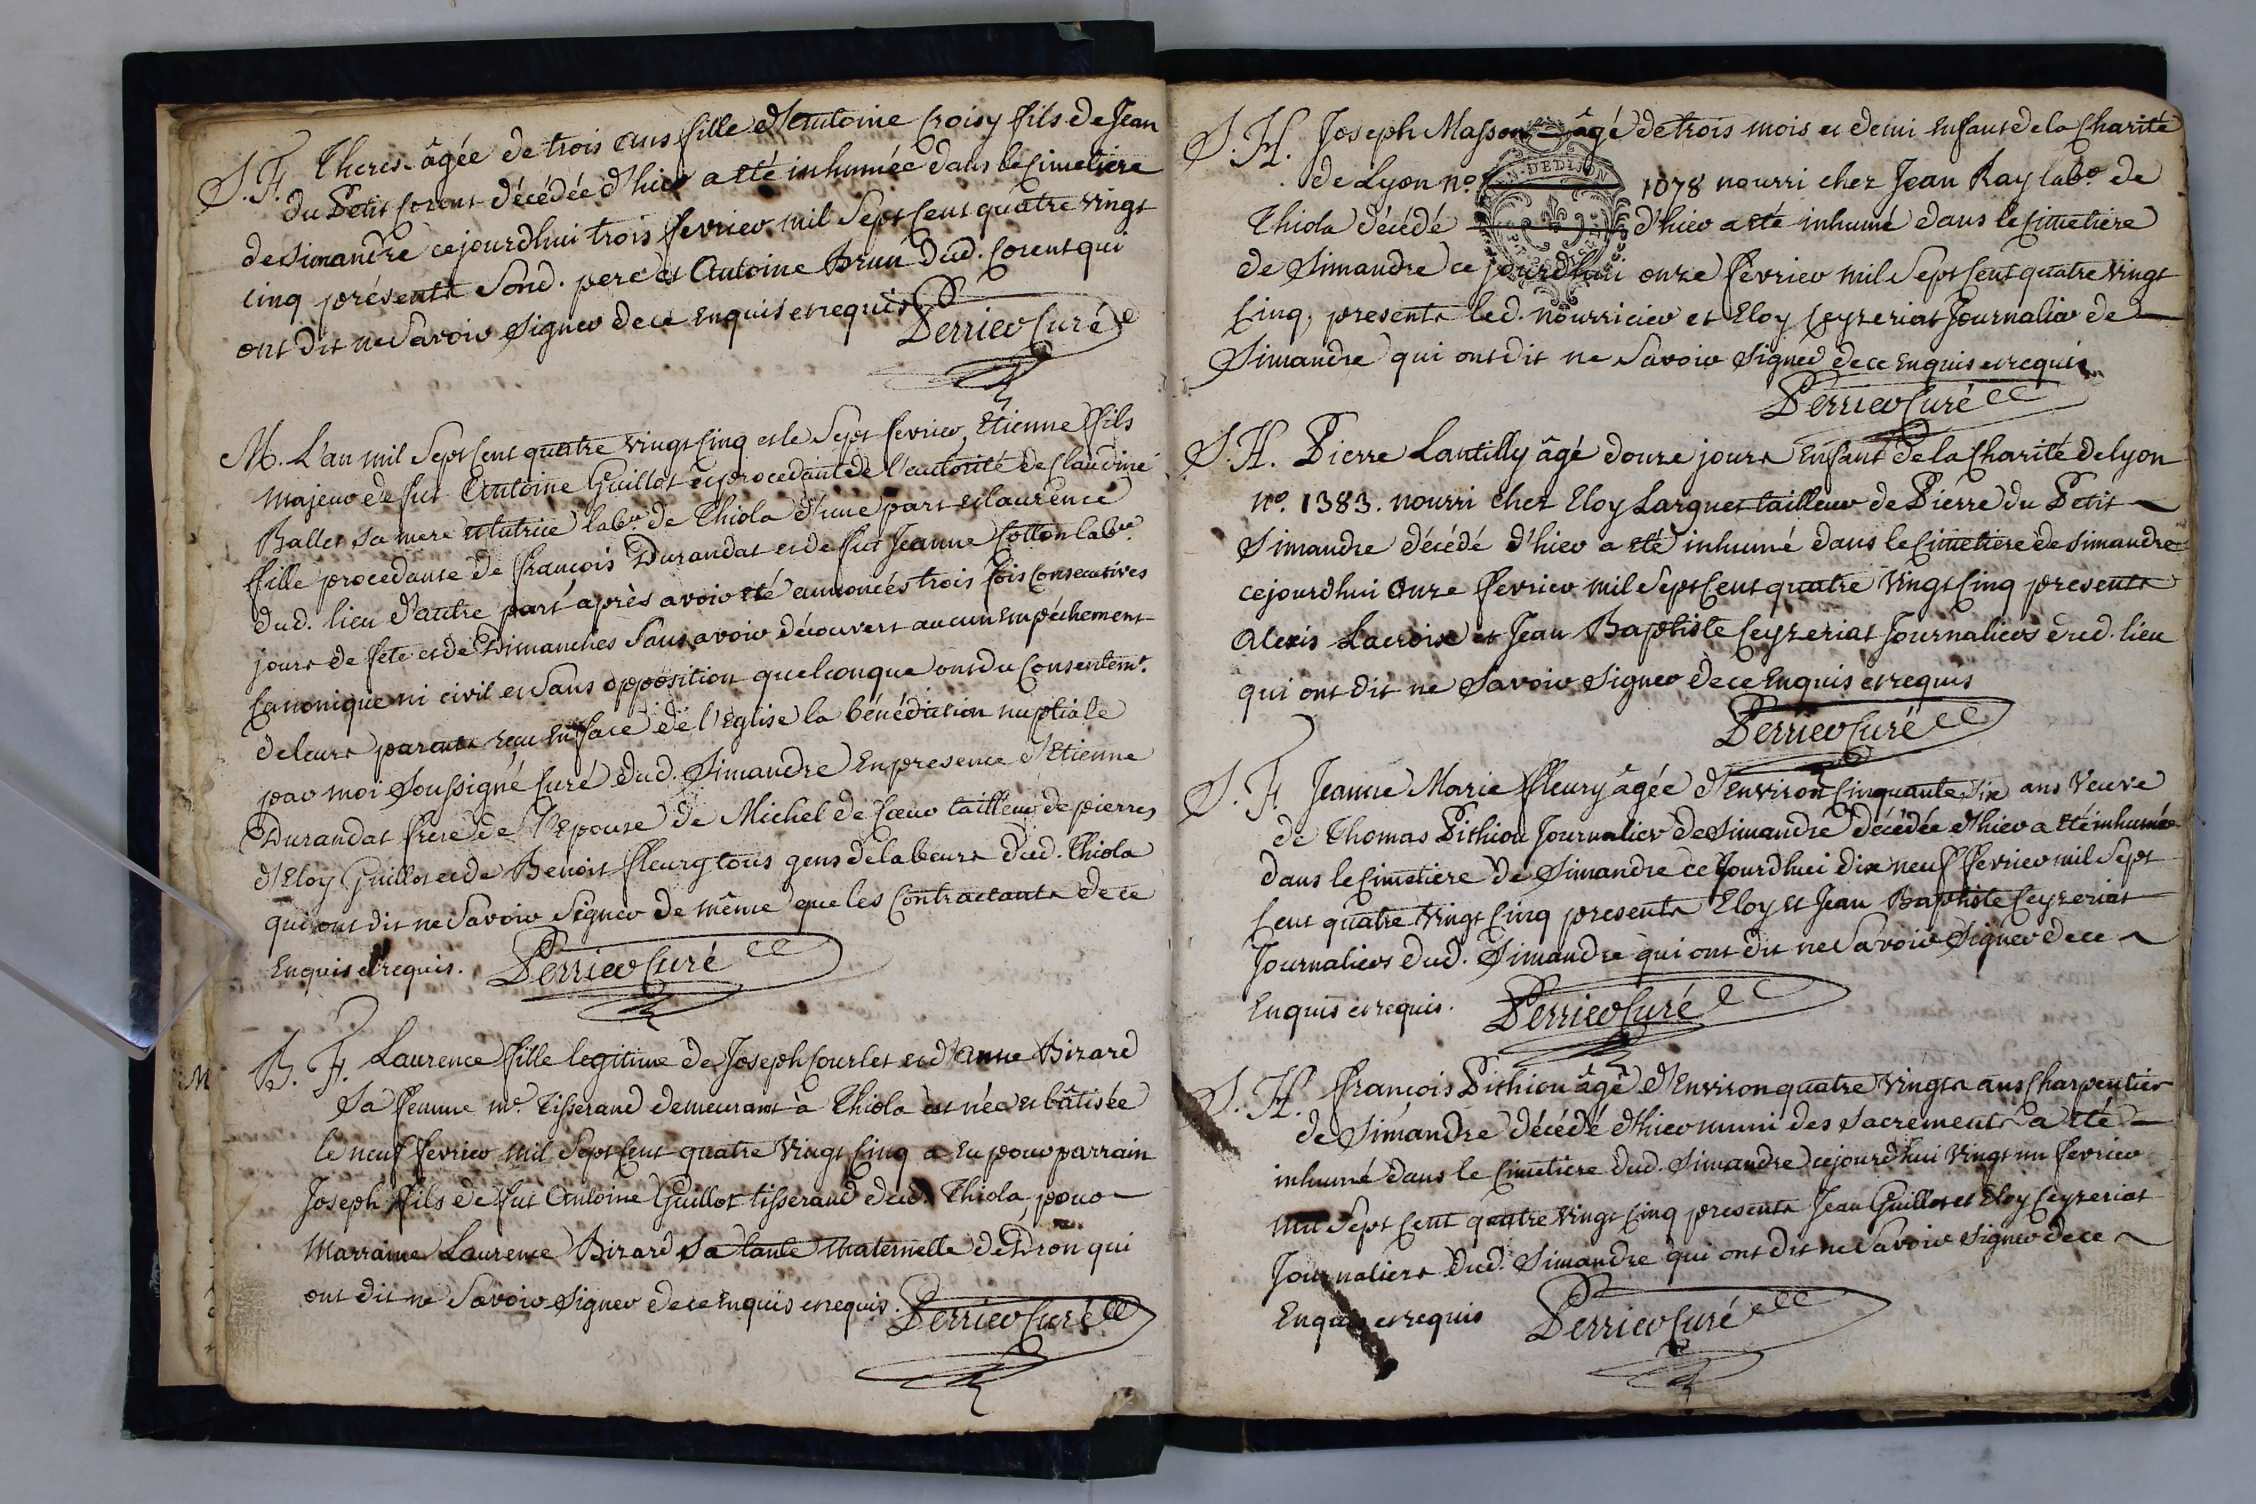 S. F. Therese âgée de trois ans fille d'Antoine Croisy fils de Jean
du Petit Corent décédée d'hier a été inhumée dans le Cimetiere
de Simandre cejourdhui trois fevrier mil Sept Cent quatre vingt
cinq présents Sond. pere et Antoine Brun dud. Corent qui
ont dit ne Savoir Signer dece Enquis et requis
Perrier Curé
M. L'an mil Sept Cent quatre vingt Cinq et le Sept fevrier, Etienne fils
majeur de fut Antoine Guillot et procedant de l'autorité de Claudine
Ballet Sa mere et tutrice labr. de Thiola d'une part et laurence
fille procedante de françois Durandat et de fut Jeanne Cotton labr.
dud. lieu d'autre part après avoir été annoncés trois fois Consecutives
jours de fête et de Dimanches Sans avoir découvert aucun Empêchement
Canonique ni civil et Sans opposition quelconque ont du Consentemt.
de leurs parents reçu En face de l'Eglise la bénédiction nuptiale
par moi Soussigné Curé dud. Simandre En presence d'Etienne
Durandat frere de l'Epouse de Michel de Coeur tailleur de pierres
d'Eloy Guillot et de Benoit fleury tous gens de labeurs dud. Thiola
qui ont dit ne Savoir Signer de même que les Contractants de ce
Enquis et requis. Perrier Curé
B. F. Laurence fille legitime de Joseph Courlet et d'anne Bizard
Sa femme me. Tisserand demeurant à Thiola est née et bâtisée
le neuf fevrier mil Sept Cent quatre vingt Cinq a Eu pour parrain
Joseph fils de fut Antoine Guillot tisserand dud. Thiola, pour
Marraine Laurence Bizard Sa tante Maternelle de Dron qui
ont dit ne Savoir Signer dece Enquis et requis.
Perrier Curé
S. H. Joseph Masson âgé de trois mois et demi Enfant de la Charité
de Lyon no. 1078 nourri chez Jean Ray labr. de
Thiola décédé d'hier a été inhumé dans le Cimetiere
de Simandre ce jourdhui onze fevrier mil Sept Cent quatre vingt
Cinq, presents led. nourricier et Eloy Ceyzeriat Journalier de
Simandre qui ont dit ne Savoir Signer dece Enquis et requis
Perrier Curé
S. H. Pierre Lantilly âgé douze jours Enfant de la Charité de lyon
no. 1383. nourri chez Eloy Larguet tailleur de Pierre du Petit
Simandre décédé d'hier a été inhumé dans le Cimetiere de Simandre
cejourdhui Onze fevrier mil Sept Cent quatre vingt Cinq presents
Alexis Lacroix et Jean Baptiste Ceyzeriat Journaliers dud. lieu
qui ont dit ne Savoir Signer dece Enquis et requis
Perrier Curé
S. F. Jeanne Marie fleury âgée d'Environ Cinquante Six ans veuve
de Thomas Pithiou Journalier de Simandre décédée d'hier a été inhumée
dans le Cimetiere de Simandre ce Jourdhui dix neuf fevrier mil Sept
Cent quatre vingt Cinq presents Eloy et Jean Baptiste Ceyzeriat
Journaliers dud. Simandre qui ont dit ne Savoir Signer dece
Enquis et requis. Perrier Curé
S. H. françois Pithiou âgé d'Environ quatre vingts ans Charpentier
de Simandre décédé d'hier muni des Sacrements a été
inhumé dans le Cimetiere dud. Simandre cejourdhui vingt un fevrier
mil Sept Cent quatre vingt Cinq presents Jean Guillot et Eloy Ceyzeriat
Journaliers dud. Simandre qui ont dit ne Savoir Signer dece
Enquis et requis Perrier Curé